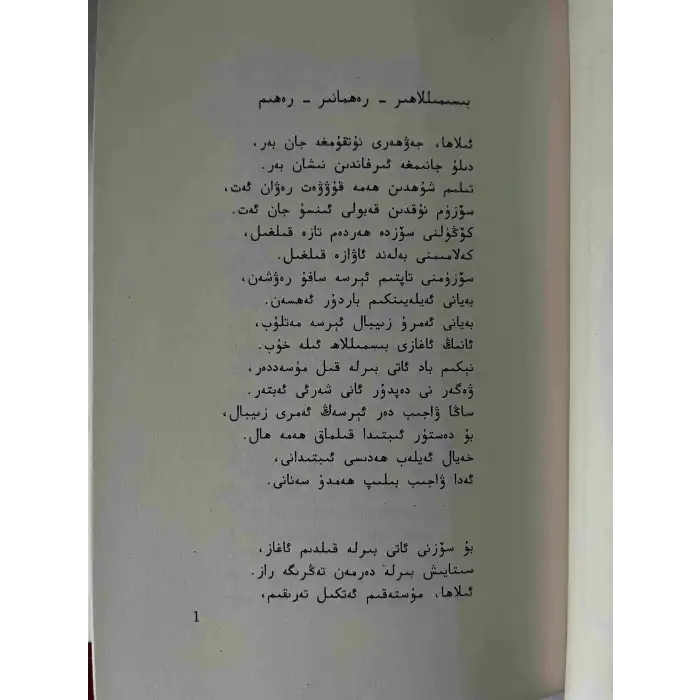 بىسىمىللاھىر – رەھمانىر – رەھىم
ئىلاھا، جەۋھەرى نۇتقۇمغە جان بەر،
دىلۇ جانىمغە ئىرفاندىن نىشان بەر.
تىلىم شۇھدىن ھەمە قۇۋۋەت رەۋان ئەت،
سۆزۈم نۇقدىن قەبولى ئىنسۇ جان ئەت.
كۆڭۈلنى سۆزدە ھەردەم تازە قىلغىل،
كەلامىمنى بەلەند ئاۋازە قىلغىل.
سۆزۈمنى تاپتىم ئېرسە سافۇ رەۋشەن،
بەيانى ئەيلەيىنكىم باردۇر ئەھسەن.
بەيانى ئەمرۇ زىيبال ئېرسە مەتلۇب،
ئانىڭ ئاغازى بىسمىللاھ ئىلە خۇب.
نېكىم باد ئاتى بىرلە قىل مۇسەددەر،
ۋەگەر نى دەپدۇر ئانى شەرئى ئەبتەر.
ساڭا ۋاجىب دەر ئېرسەڭ ئەمرى زىيبال،
بۇ دەستۇر ئىبتىدا قىلماق ھەمە ھال.
خەيال ئەيلەب ھەدىسى ئىبتىدانى،
ئەدا ۋاجىب بىلىپ ھەمدۇ سەنانى.
بۇ سۆزنى ئاتى بىرلە قىلدىم ئاغاز،
سىتايىش بىرلە دەرمەن تەڭرىگە راز.
ئىلاھا، مۇستەقىم ئەتكىل تەرىقىم،
1